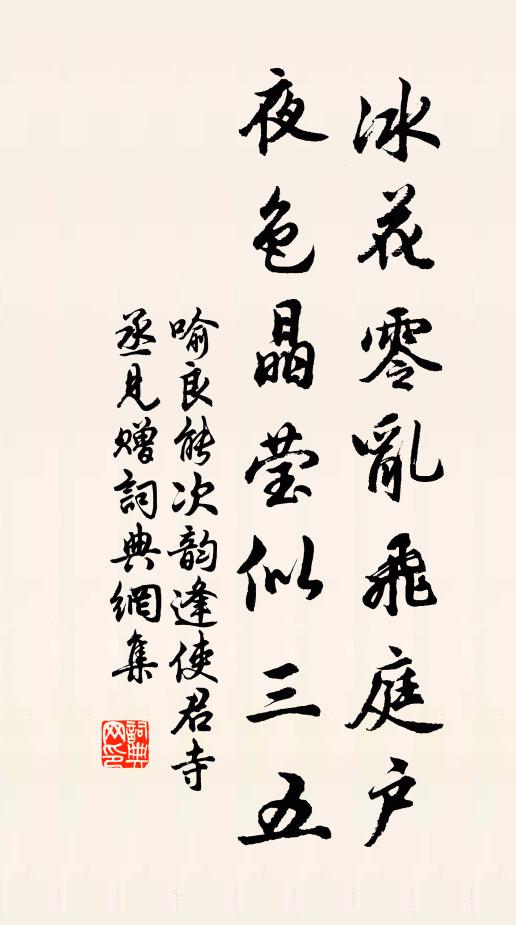 冰花零亂飛庭户
夜色晶莹似三五
喻良能次韵逢使君寺
丞見赠詞典網集
詞典
网印